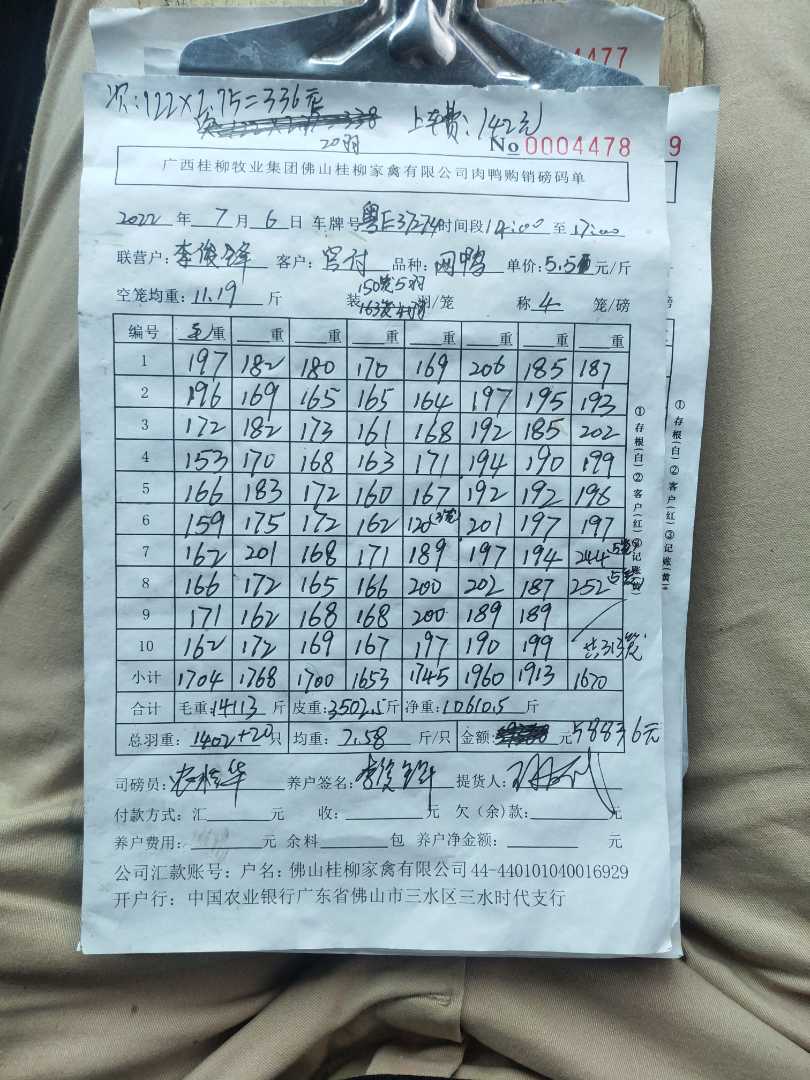 4477
次:122×2.75=336元
上车费:142元
20羽
No 0004478 9
广西桂柳牧业集团佛山桂柳家禽有限公司肉鸭购销磅码单
2022 年 7 月 6 日 车牌号 粤E37274 时间段 14:00 至 17:00
联营户: 李俊锋 客户: 品种: 单价: 5.5 元/斤
150笼5羽
空笼均重: 11.19 斤 装 163笼4羽 /笼 称 4 笼/磅
编号 毛重 重 重 重 重 重 重 重
1 197 182 180 170 169 206 185 187
2 196 169 165 165 164 197 195 193
3 172 182 173 161 168 192 185 202
4 153 170 168 163 171 194 190 199
5 166 183 172 160 167 192 192 196
6 159 175 172 162 120(3笼) 201 197 197
7 162 201 168 171 189 197 194 244 5笼
8 166 172 165 166 200 202 187 252 5笼
9 171 162 168 168 200 189 189
10 162 172 169 167 197 190 199 共313笼
小计 1704 1768 1700 1653 1745 1960 1913 1670
合计 毛重: 14113 斤 皮重: 3502.5 斤 净重: 10610.5 斤
总羽重: 1402+20 只 均重: 7.58 斤/只 金额: 元 58836元
司磅员: 养户签名: 提货人:
付款方式: 汇 元 收: 元 欠(余)款: 元
养户费用: 元 余料 包 养户净金额: 元
公司汇款账号: 户名: 佛山桂柳家禽有限公司44-440101040016929
开户行: 中国农业银行广东省佛山市三水区三水时代支行
①存根(白)②客户(红)③记账(黄)
①存根(白)②客户(红)③记账(黄)